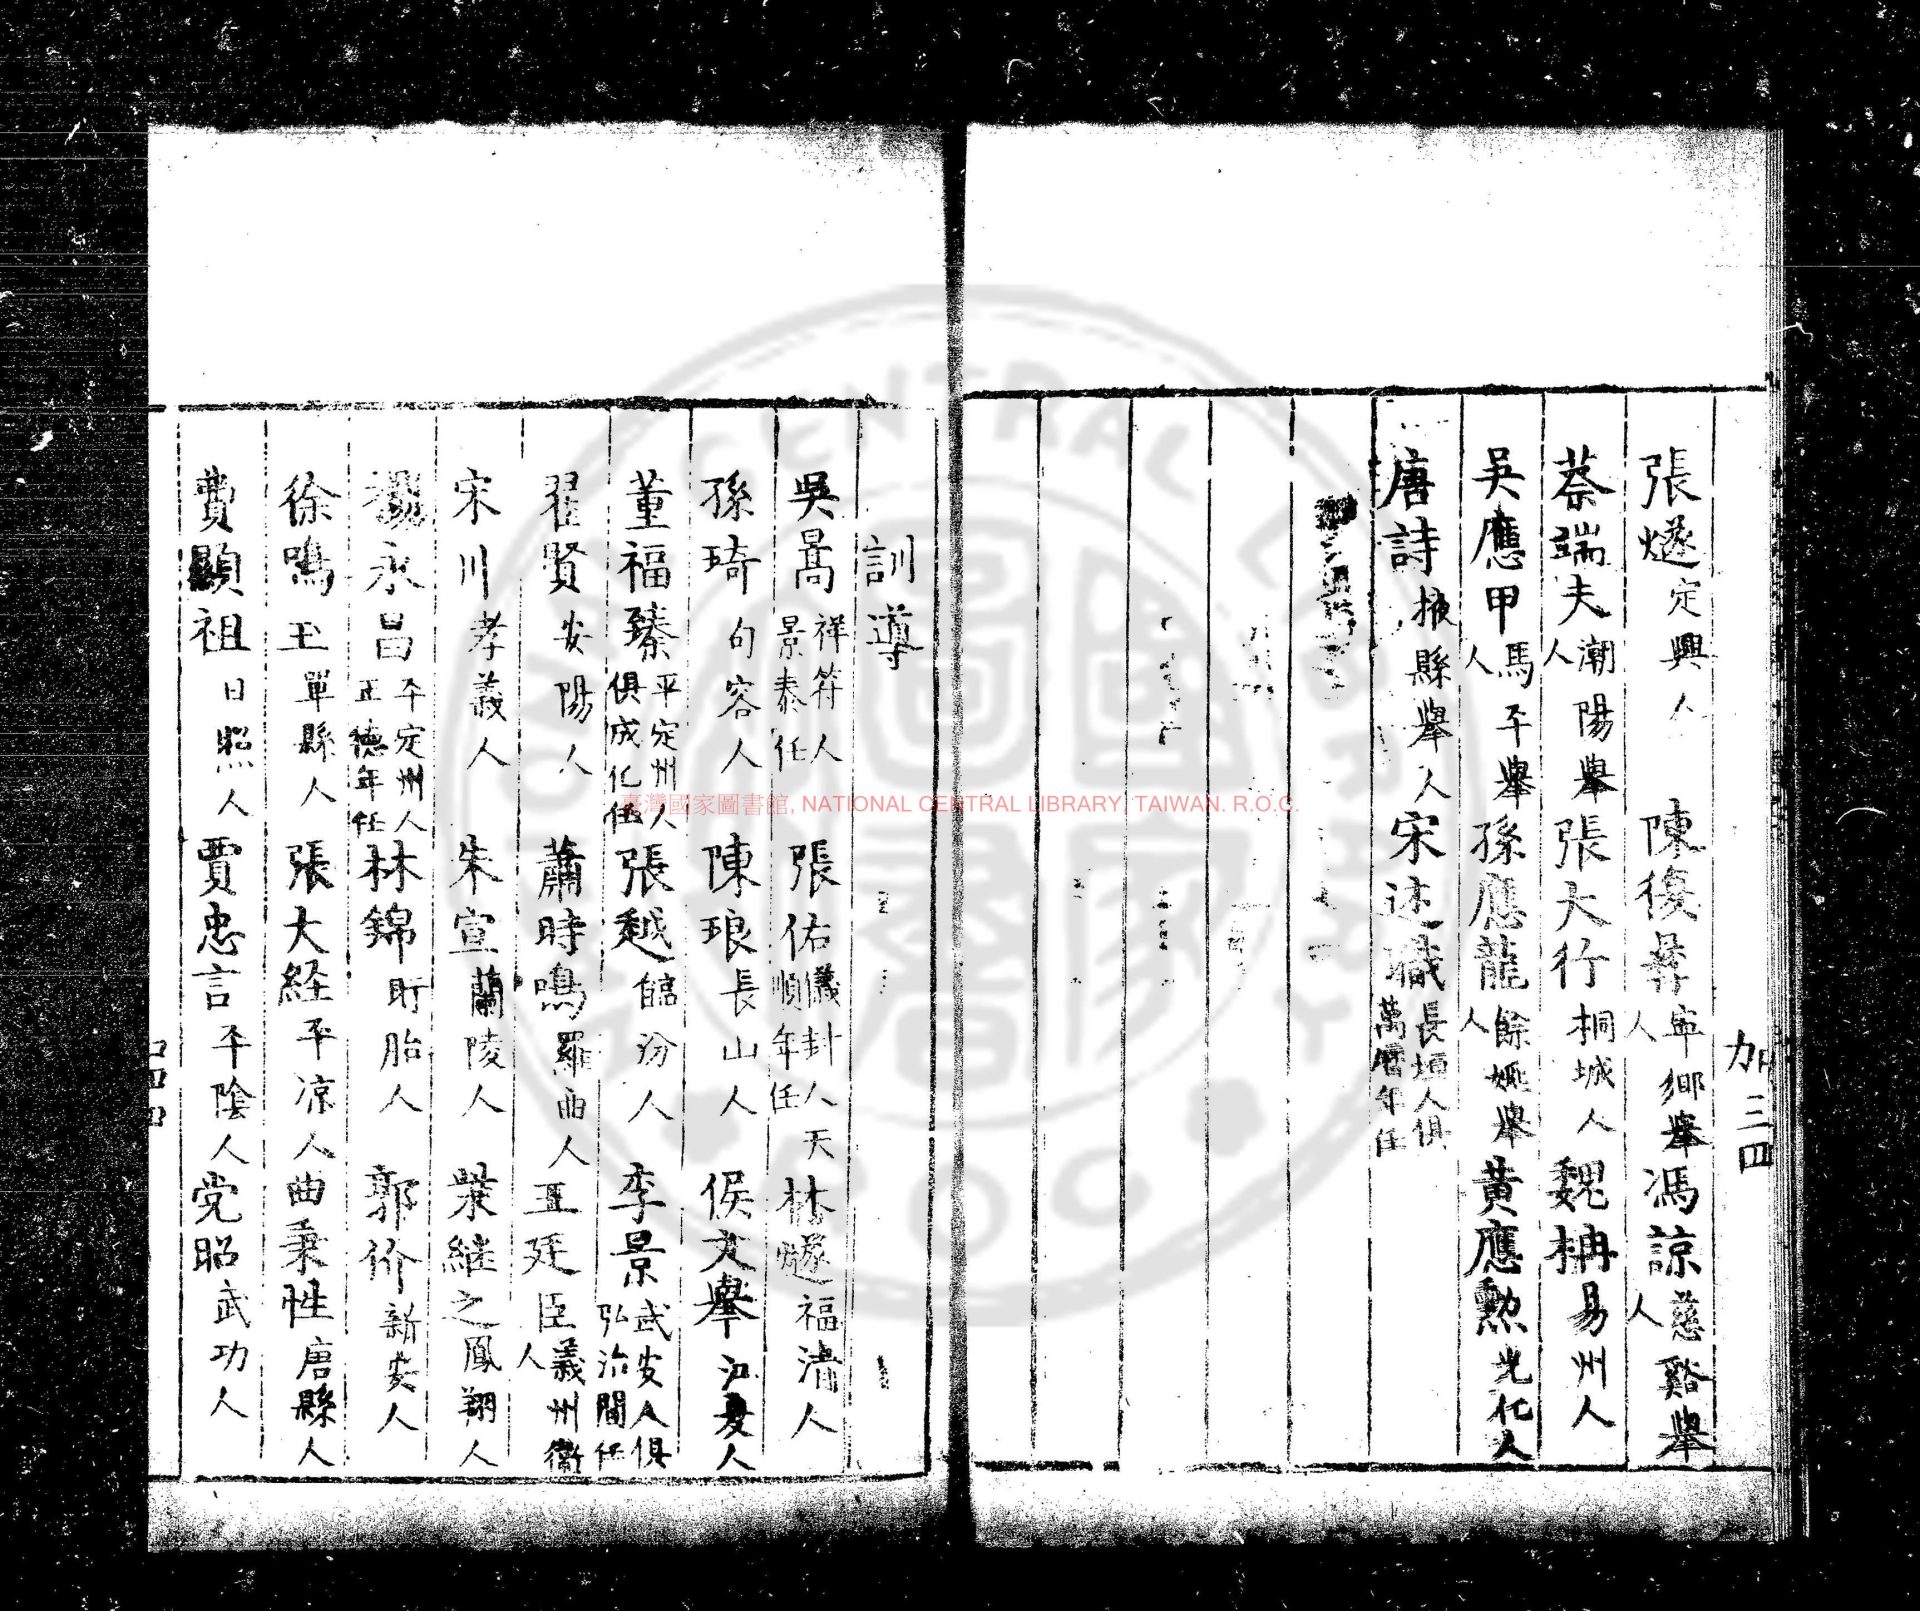 張燧定興人 陳復彞寧鄉舉人 馮諒慈谿舉人
蔡端夫潮陽舉人 張大行桐城人 魏柟易州人
吳應甲馬平舉人 孫應龍餘姚舉人 黃應勲光化人
唐詩掖縣舉人 宋述職長垣人俱萬曆年任
加三四
訓導
吳暠祥符人景泰任 張佑儀封人天順年任 林燧福清人
孫琦句容人 陳琅長山人 侯文舉江夏人
董福臻平定州人俱成化任 張越臨汾人 李景武安人俱弘治間任
翟賢安陽人 蕭時鳴羅田人 王廷臣義州衛人
宋川孝義人 朱宣蘭陵人 柴継之鳳翔人
楊永昌平定州人正德年任 林錦盱眙人 郭价新安人
徐鳴玉單縣人 張大経平凉人 曲秉性唐縣人
費顯祖日照人 賈忠言平陰人 党昭武功人
臺灣國家圖書館, NATIONAL CENTRAL LIBRARY, TAIWAN. R.O.C.